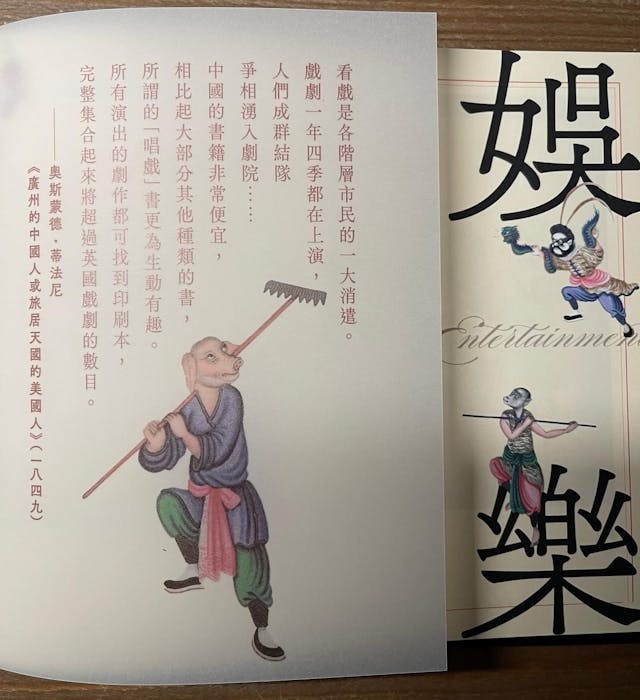 看戲是各階層市民的一大消遣。
戲劇一年四季都在上演，
人們成群結隊
爭相湧入劇院……
中國的書籍非常便宜，
相比起大部分其他種類的書，
所謂的「唱戲」書更為生動有趣。
所有演出的劇作都可找到印刷本，
完整集合起來將超過英國戲劇的數目。
——奧斯蒙德·蒂法尼
《廣州的中國人或旅居天國的美國人》（一八四九）
娛樂
Entertainment